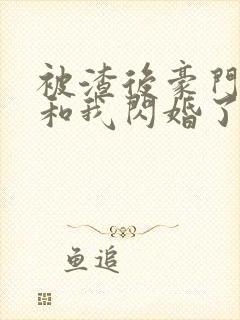 被渣後豪門
和我閃婚了
鱼追